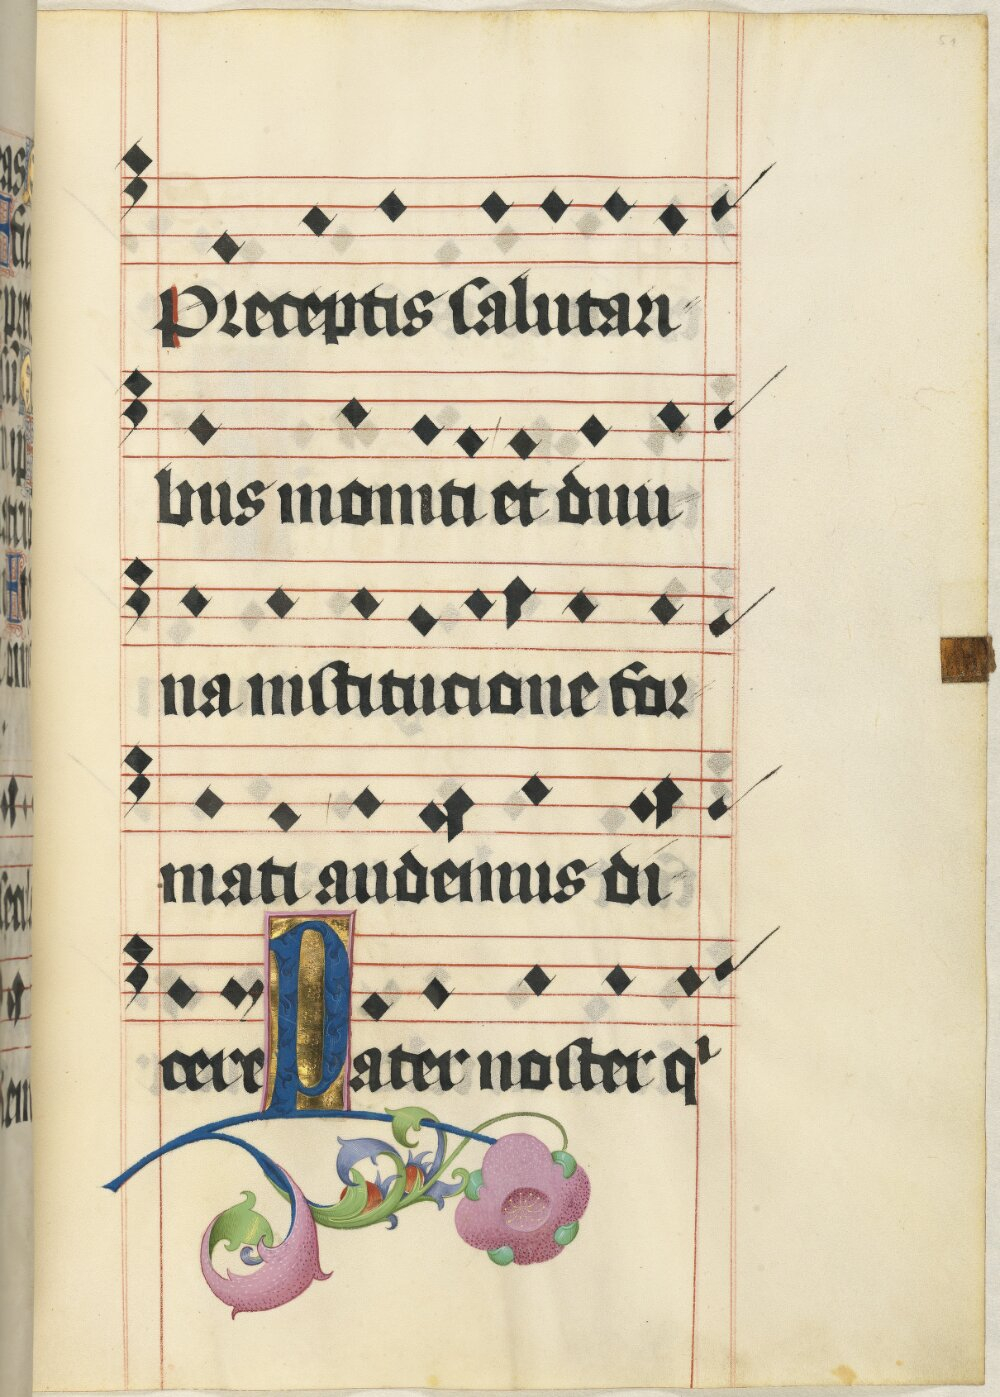 Preceptis salutari
bus moniti et diui
na institucione for
mati audemus di
cere Pater noster qi